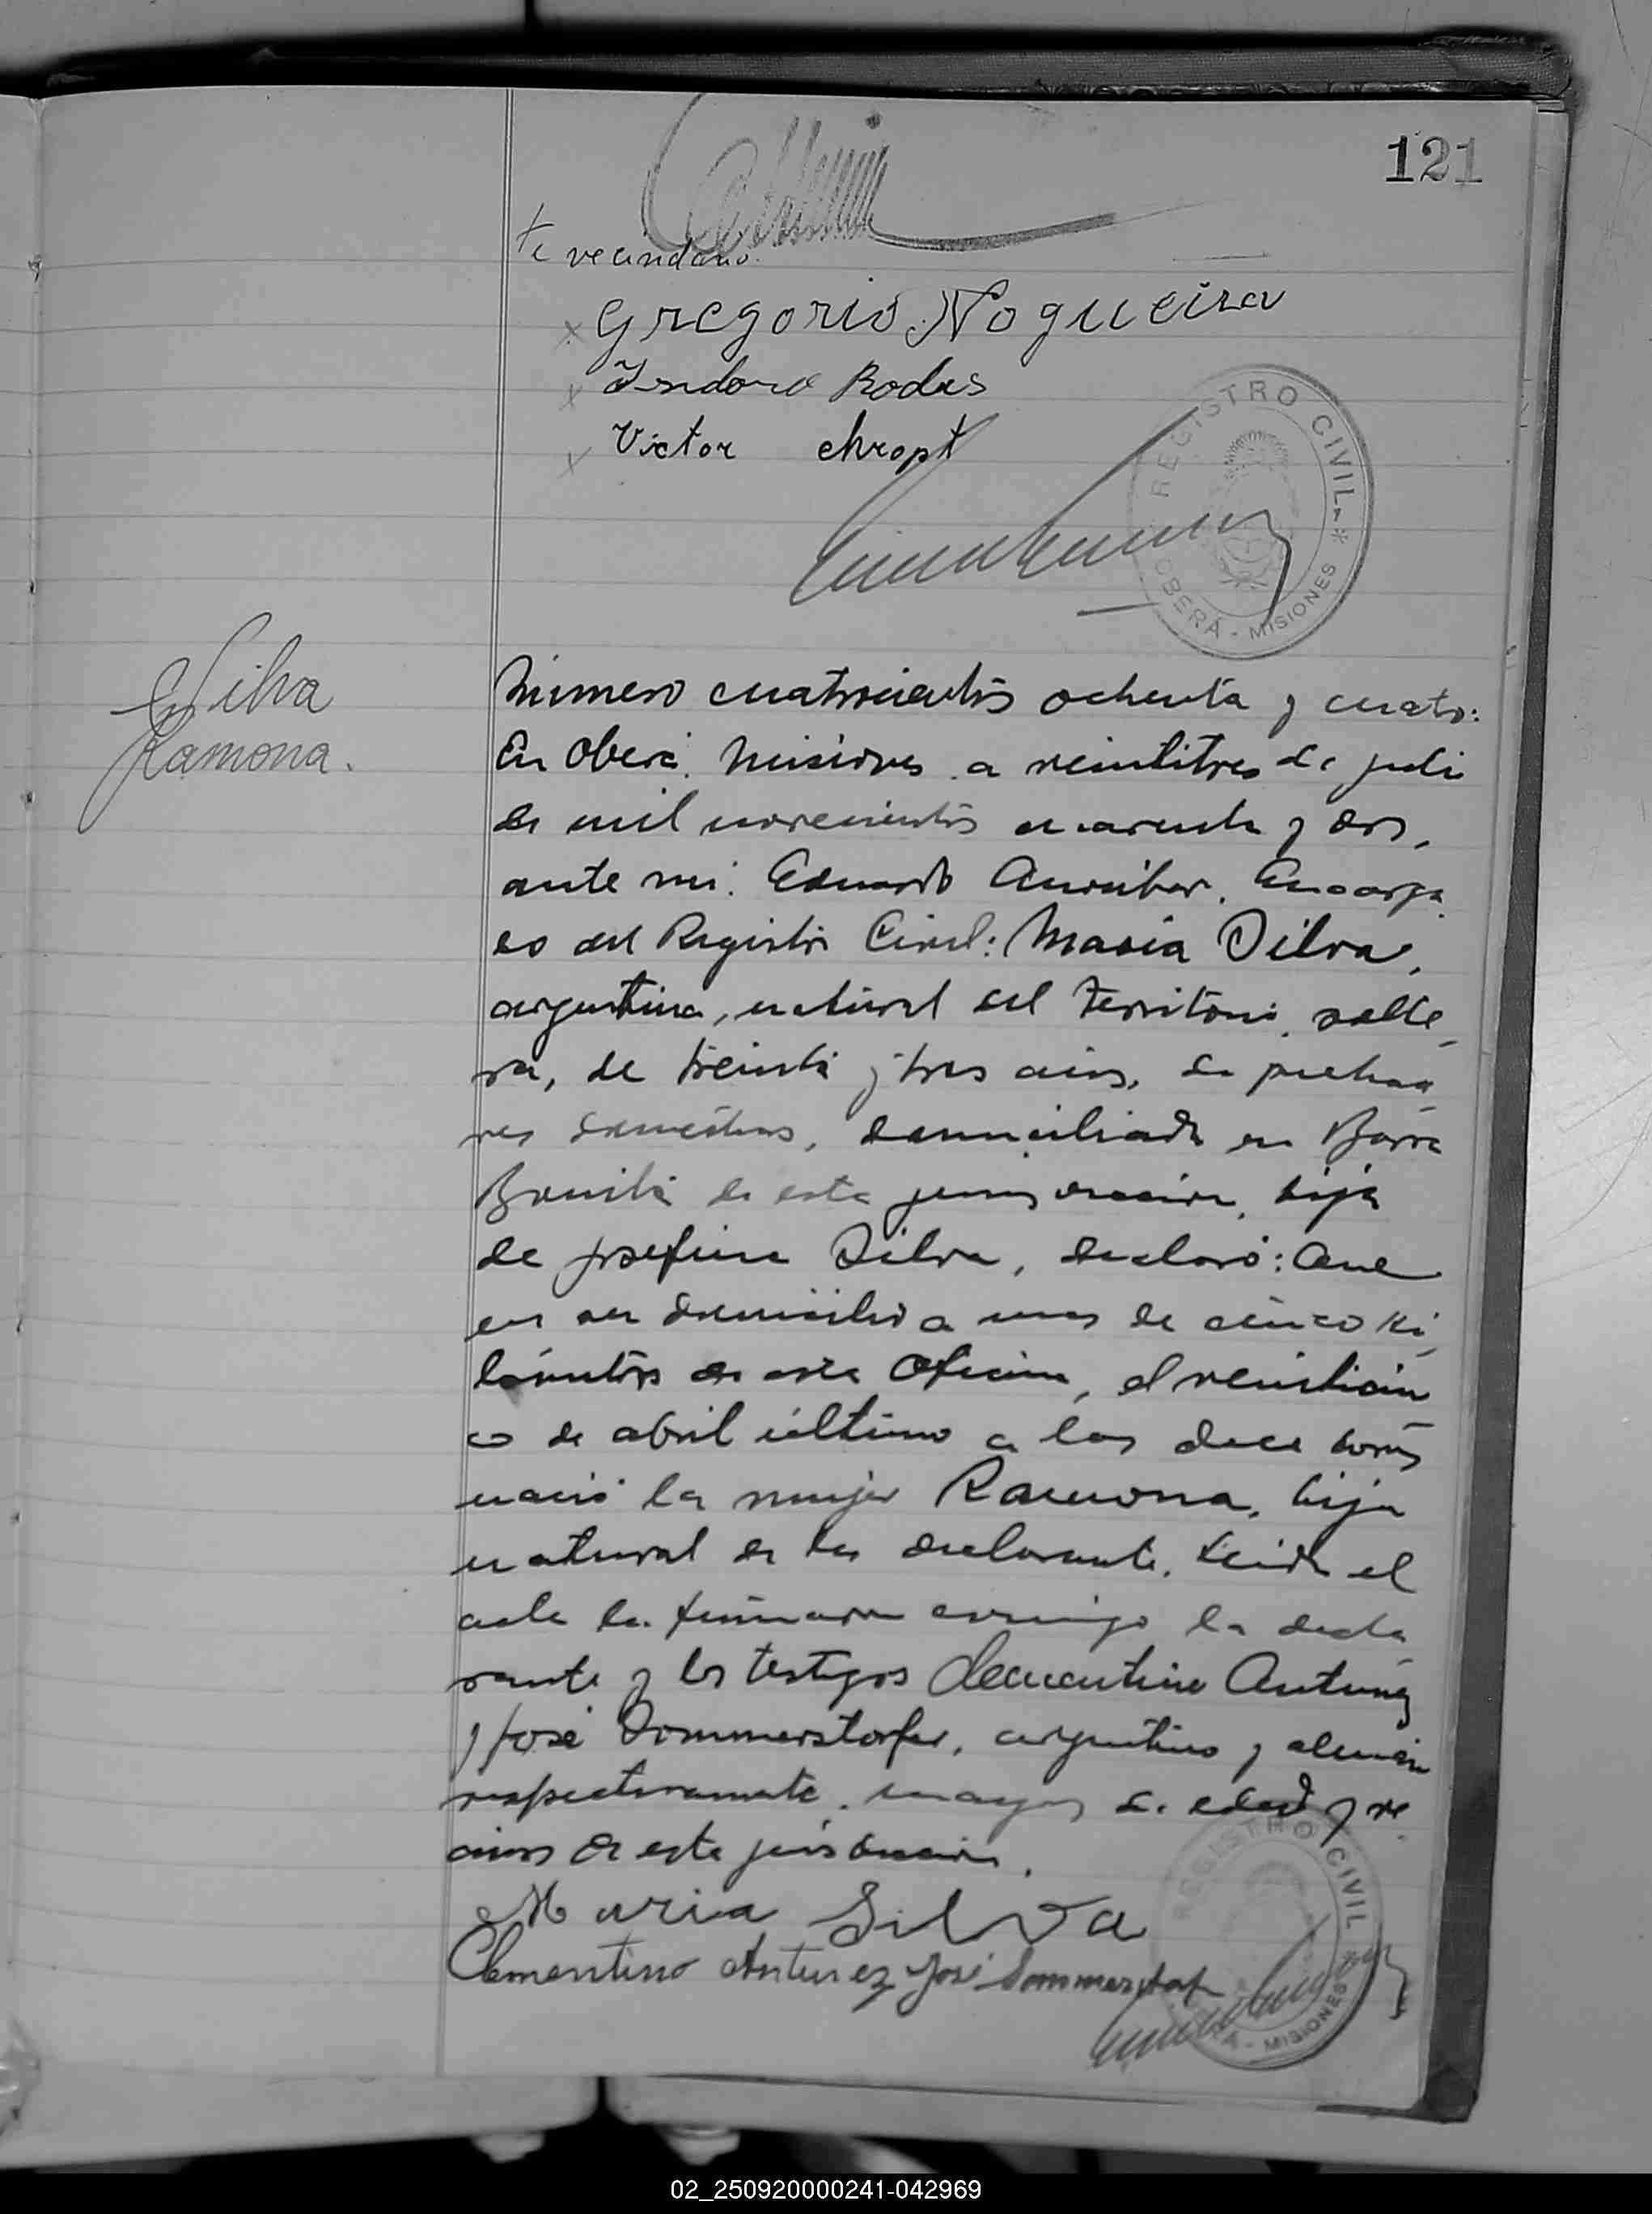 121
te vecindario.
Gregorio Nogueira
Isidoro Rodas
Victor Chropt
REGISTRO CIVIL
OBERÁ - MISIONES
Silva
Ramona.
Número cuatrocientos ochenta y cuatro:
En Oberá, Misiones, a veintitres de juli
de mil novecientos cuarenta y dos,
ante mi, Eduardo, Encarga
do del Registro Civil: Maria Silva,
argentina, natural del Territorio, solte
ra, de treinta y tres años, de quehace
res domésticos, domiciliada en Barra
Bonita de esta jurisdicción, hija
de Josefina Silva, declaró: Que
en su domicilio a unos de cinco ki
lómetros de esta Oficina, el veinticin
co de abril último a las doce horas
nació la mujer Ramona, hija
natural de la declarante. Leida el
acta la firmaron conmigo la decla
rante y los testigos Clementino Antunez
y José Sommerstorfer, argentino y alemán
respectivamente, mayores de edad y ve
cinos de esta jurisdicción.
Maria Silva
Clementino Antunez José Sommerstorf
REGISTRO CIVIL
MISIONES
02_250920000241-042969